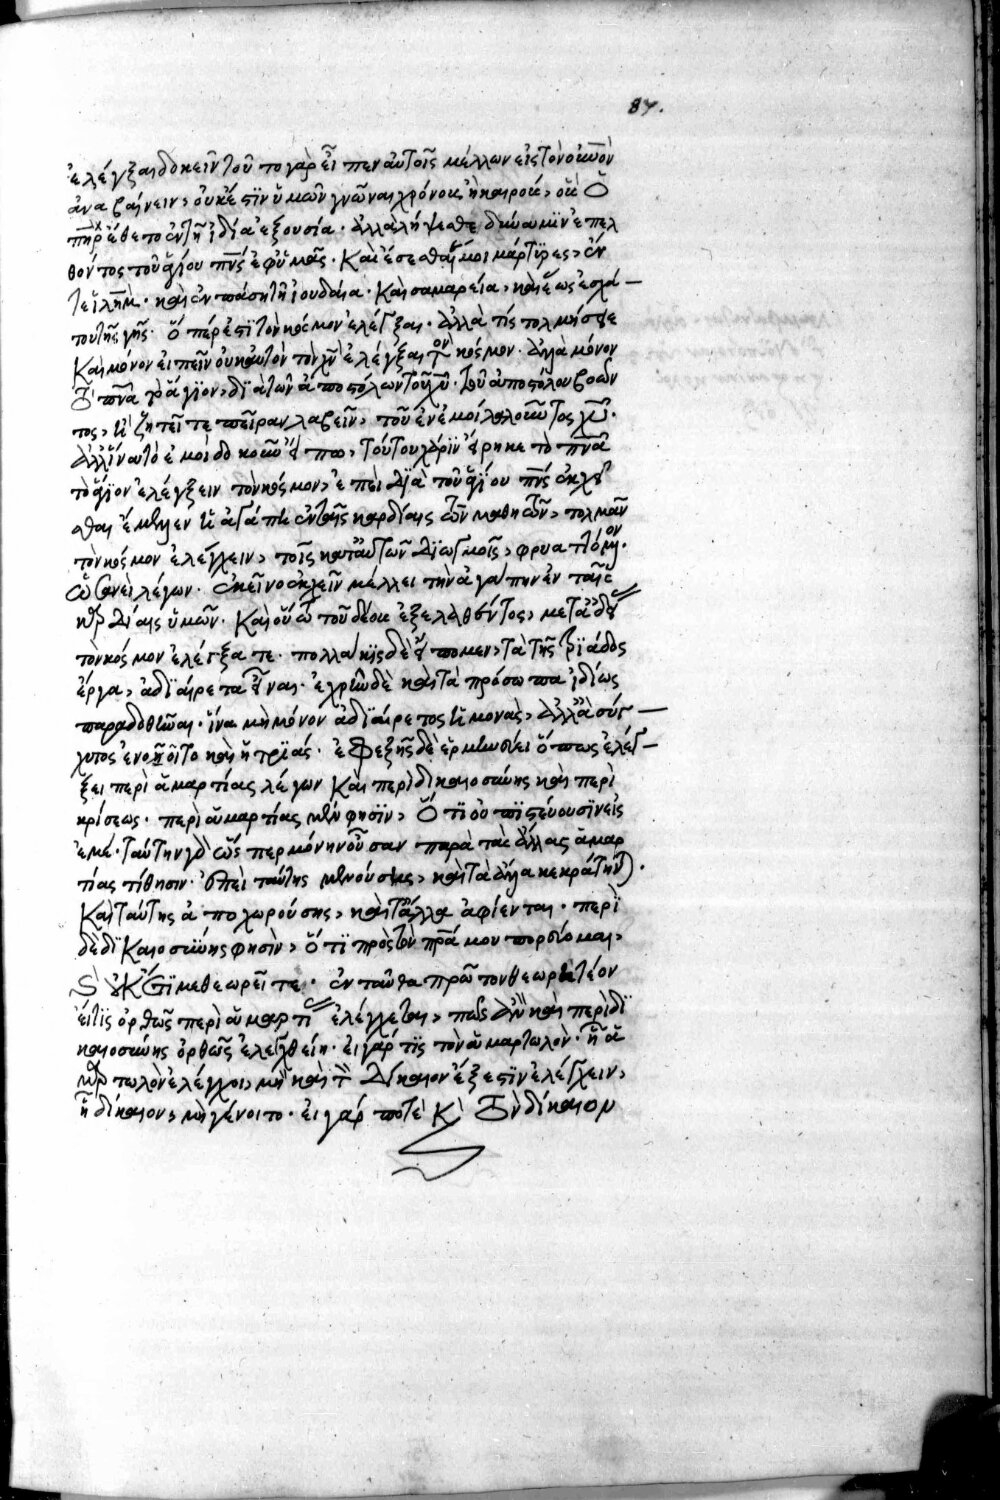 87.
ἐλέγξαι δοκεῖν τοῦτο γὰρ εἶπεν αὐτοῖς μέλλων εἰς τὸν οὐνὸν
ἀναβαίνειν, οὐκ ἔστιν ὑμῶν γνῶναι χρόνους ἢ καιροὺς, οὓς ὁ
πῆρ ἔθετο ἐν τῇ ἰδία ἐξουσία. ἀλλὰ λήψεσθε δύναμιν ἐπελ
θόντος τοῦ ἁγίου πνς ἐφ' ὑμᾶς. Καὶ ἔσεσθαί μοι μάρτυρες, ἐν
τε ἰλῆμ. καὶ ἐν πάσῃ τῇ ἰουδαία. Καὶ σαμαρεία, καὶ ἕως ἐσχά
του τῆς γῆς. ὅπέρ ἐστι τὸν κόσμον ἐλέγξαι. ἀλλὰ τίς τολμήσειε
Καὶ μόνον εἰπεῖν οὐκ αὐτὸν τὸν χν ἐλέγξαι τὸν κόσμον. ἀλλὰ μόνον
τὸ πνα τὸ ἅγιον, διὰ τῶν ἀποστόλων τοῦ χυ. τοῦ ἀποστόλου βοῶν
τος, εἰ ζητεῖτε πεῖραν λαβεῖν, τοῦ ἐν ἐμοὶ λαλοῦντος χυ.
τὸ ἅγιον ἐλέγξειν τὸν κόσμον, ἐπεὶ διὰ τοῦ ἁγίου πνς
ἔμελλεν ἡ ἀγάπη ἐν ταῖς καρδίαις τῶν μαθητῶν, τολμᾶν
τὸν κόσμον ἐλέγχειν, τοῖς κατ' αὐτῶν διωγμοῖς, φρυαττόμενον.
ὡσανεὶ λέγων. ἐκεῖνο ἐκχεῖν μέλλει τὴν ἀγάπην ἐν ταῖς
καρδίαις ὑμῶν. Καὶ οὕτω τοῦ δέους ἐξελαθέντος, μετὰ
τὸν κόσμον ἐλέγξατε. πολλάκις δὲ εἴπομεν, τὰ τῆς τριάδος
ἔργα, ἀδιαίρετα εἶναι. ἐχρῆν δὲ καὶ τὰ πρόσωπα ἰδίως
παραδοθῆναι. ἵνα μὴ μόνον ἀδιαίρετος ἡ μονὰς, ἀλλὰ σύγ
χυτος ἐνοῆτο καὶ ἡ τριάς. ἐφεξῆς δὲ ἑρμηνεύει ὅπως ἐλέγ
ξει περὶ ἁμαρτίας λέγων Καὶ περὶ δικαιοσύνης καὶ περὶ
κρίσεως. περὶ ἁμαρτίας μὲν φησὶν, ὅτι οὐ πιστεύουσιν εἰς
ἐμέ. ταύτην γὰρ ὥσπερ μόνην οὖσαν παρὰ τὰς ἄλλας ἁμαρ
τίας τίθησιν. ἐπεὶ ταύτης μενούσης, καὶ τὰ ἄλλα κεκράτηνται.
Καὶ ταύτης ἀποχωρούσης, καὶ τἄλλα ἀφίενται. περὶ
δὲ δικαιοσύνης φησὶν, ὅτι πρὸς τὸν πρα μου πορεύομαι,
καὶ οὐκέτι με θεωρεῖτε. ἐνταῦθα πρῶτον θεωρητέον
εἴτις ὀρθῶς περὶ ἁμαρτίας ἐλέγχεται, πῶς ἂν καὶ περὶ δι
καιοσύνης ὀρθῶς ἐλεγχθείη. εἰ γάρ τις τὸν ἁμαρτωλὸν. ἢ ἁ
μαρτωλὸν ἐλέγχοι, μὴ καὶ τὸν δίκαιον ἔξεστιν ἐλέγχειν,
ἢ δίκαιον, μὴ γένοιτο. εἰ γάρ ποτε καὶ τὸν δίκαιον